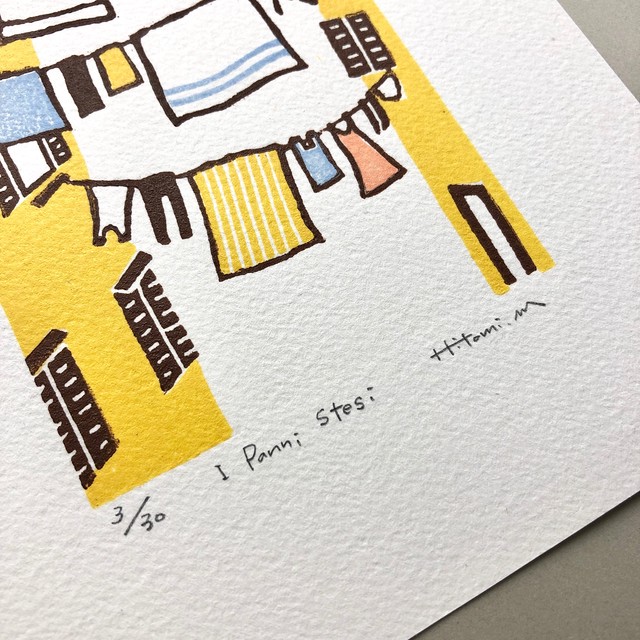 3/30
I Panni Stesi
Hitomi.m